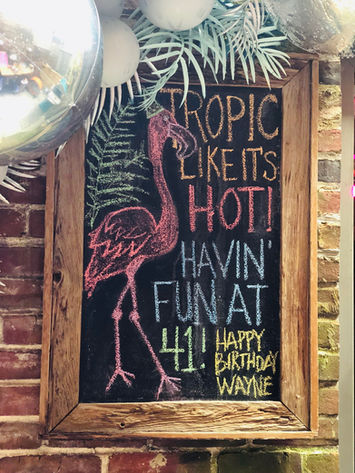 TROPIC
LIKE IT'S
HOT!
HAVIN'
FUN AT
41! HAPPY
BIRTHDAY
WAYNE